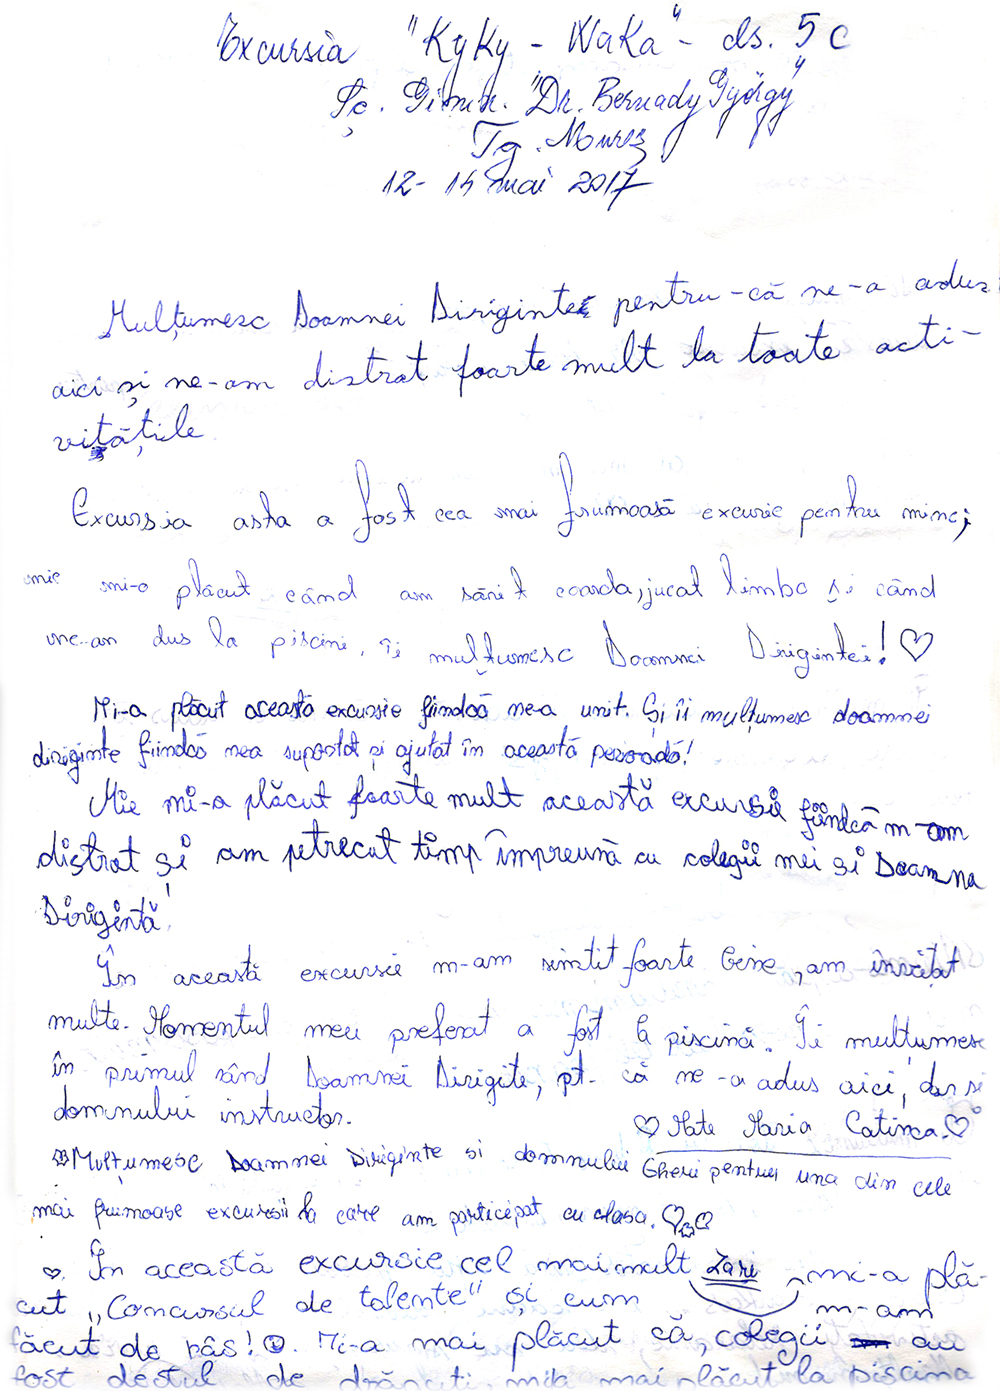 Excursia "Kyky - Waka" - cls. 5 C
Șc. Gimn. "Dr. Bernady György"
Tg. Mureș
12 - 14 mai 2017
Mulțumesc Doamnei Diriginte pentru-că ne-a adus
aici și ne-am distrat foarte mult la toate acti-
vitățile
Excursia asta a fost cea mai frumoasă excurie pentru mine;
mie mi-a plăcut când am sărit coarda, jucat limbo și când
ne-an dus la piscini, îi mulțumesc Doamnei Dirigintei! ♡
Mi-a plăcut această excursie fiindcă ne-a unit. Și îi mulțumesc doamnei
diriginte fiindcă nea suportat și ajutat în această perioadă!
Mie mi-a plăcut foarte mult această excursie fiindcă m-am
distrat si am petrecut timp împreună cu colegii mei si Doamna
Dirigintă!
În această excursie m-am simtit foarte bine, am învățat
multe. Momentul meu preferat a fost la piscină. Îi mulțumesc
în primul rând Doamnei Dirigite, pt. că ne-a adus aici, dar si
domnului instructor.
♡ Mate Maria Catinca. ♡
Mulțumesc Doamnei Diriginte si domnului Gheri pentru una din cele
mai frumoase excursii la care am participat cu clasa. ♡
♡. În această excursie cel mai mult Zari mi-a plă-
cut „Concursul de talente" și cum m-am
făcut de râs! ☺. Mi-a mai plăcut că, colegii au
fost destul de drăguți, mia mai plăcut la piscina